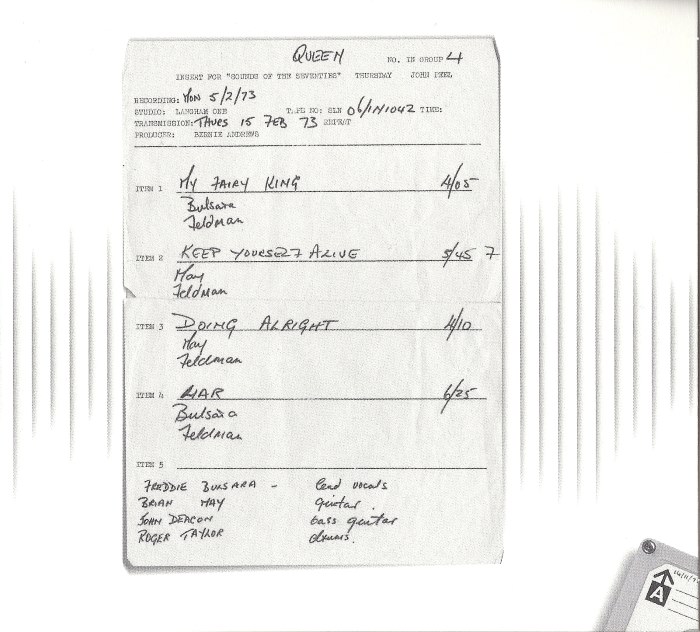 QUEEN NO. IN GROUP 4
INSERT FOR "SOUNDS OF THE SEVENTIES" THURSDAY JOHN PEEL
RECORDING: MON 5/2/73
STUDIO: LANGHAM ONE TAPE NO: SLN 06/1N1042 TIME:
TRANSMISSION: THURS 15 FEB 73 REPEAT
PRODUCER: BERNIE ANDREWS
ITEM 1 MY FAIRY KING 4/05
Bulsara
Feldman
ITEM 2 KEEP YOURSELF ALIVE 3/45 7
May
Feldman
ITEM 3 DOING ALRIGHT 4/10
May
Feldman
ITEM 4 LIAR 6/25
Bulsara
Feldman
ITEM 5
FREDDIE BULSARA - lead vocals
BRIAN MAY guitar.
JOHN DEACON bass guitar
ROGER TAYLOR drums.
A